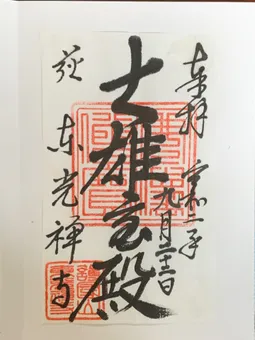 奉拝 令和二年
九月二十二日
大雄宝殿
萩
東光禅寺